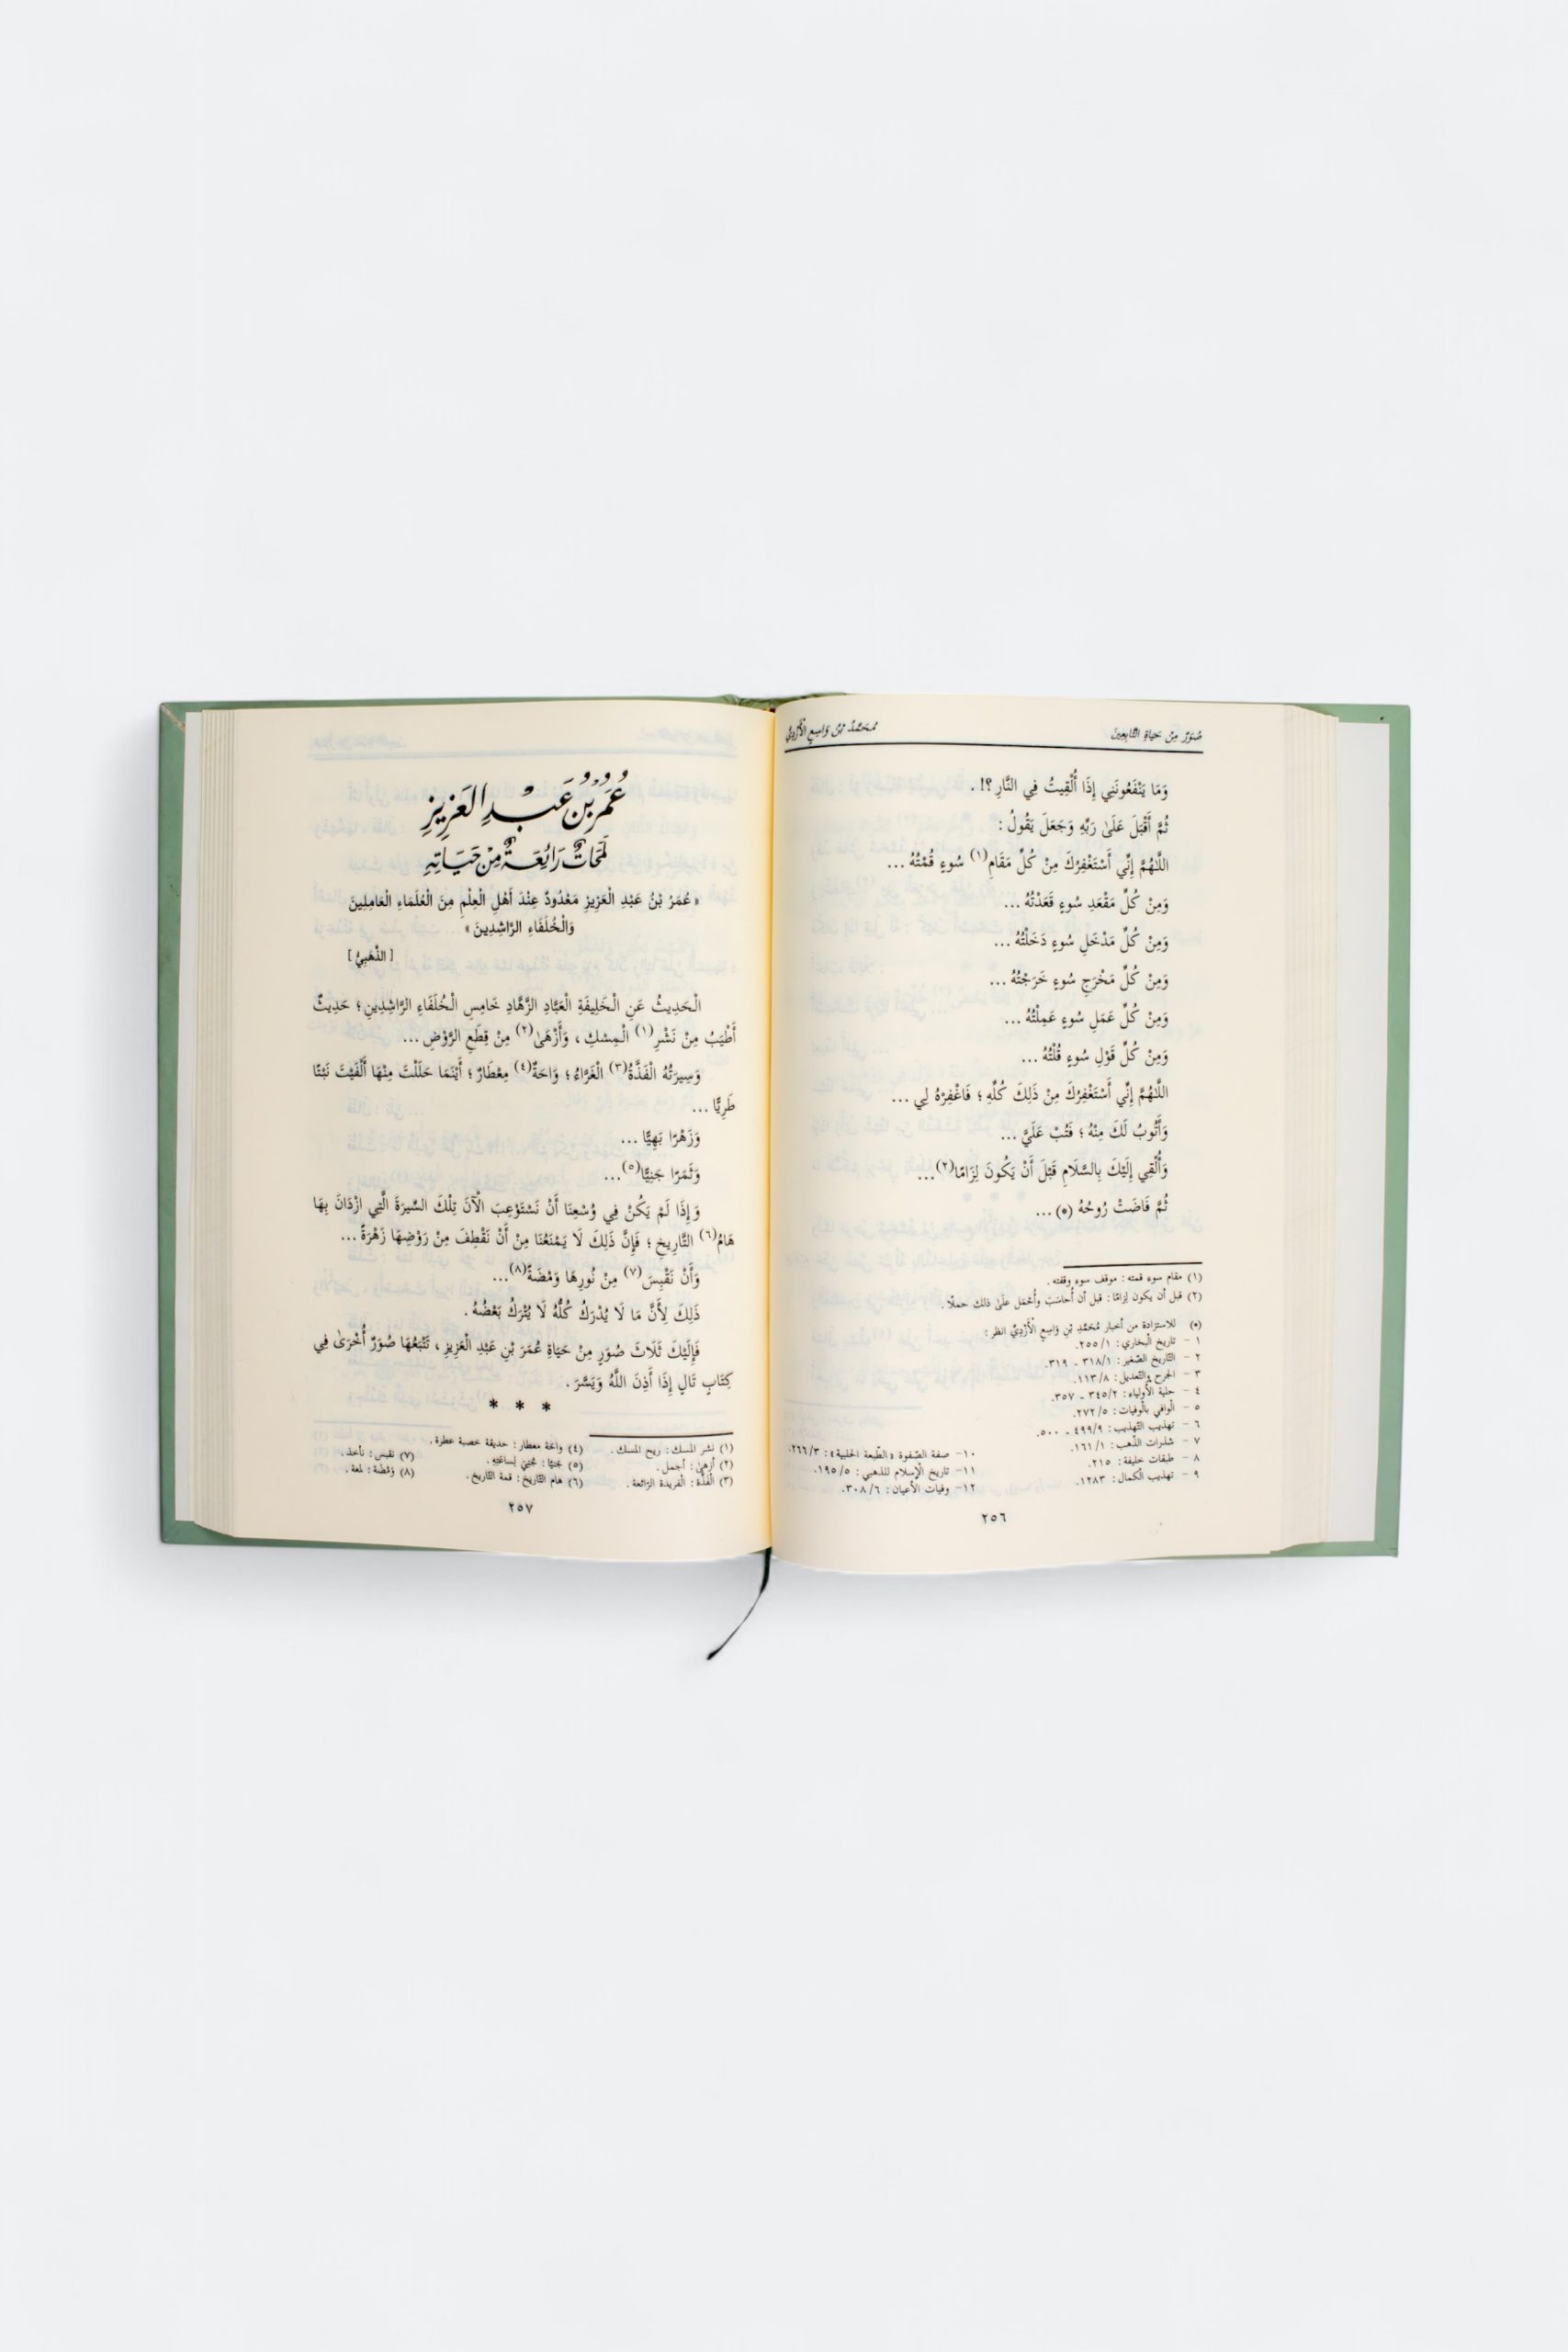 صُوَرٌ مِنْ حَيَاةِ التَّابِعِينَ
مُحَمَّدُ بْنُ وَاسِعٍ الْأَزْدِيُّ
وَمَا يَنْفَعُونَنِي إِذَا أُلْقِيتُ فِي النَّارِ ؟! .
ثُمَّ أَقْبَلَ عَلَىٰ رَبِّهِ وَجَعَلَ يَقُولُ :
اللَّهُمَّ إِنِّي أَسْتَغْفِرُكَ مِنْ كُلِّ مَقَامِ(١) سُوءٍ قُمْتُهُ ...
وَمِنْ كُلِّ مَقْعَدِ سُوءٍ قَعَدْتُهُ ...
وَمِنْ كُلِّ مَدْخَلِ سُوءٍ دَخَلْتُهُ ...
وَمِنْ كُلِّ مَخْرَجِ سُوءٍ خَرَجْتُهُ ...
وَمِنْ كُلِّ عَمَلِ سُوءٍ عَمِلْتُهُ ...
وَمِنْ كُلِّ قَوْلِ سُوءٍ قُلْتُهُ ...
اللَّهُمَّ إِنِّي أَسْتَغْفِرُكَ مِنْ ذَلِكَ كُلِّهِ ؛ فَاغْفِرْهُ لِي ...
وَأَتُوبُ لَكَ مِنْهُ ؛ فَتُبْ عَلَيَّ ...
وَأُلْقِي إِلَيْكَ بِالسَّلَامِ قَبْلَ أَنْ يَكُونَ لِزَامًا(٢)...
ثُمَّ فَاضَتْ رُوحُهُ (*) ...
(١) مقام سوء قمته : موقف سوء وقفته .
(٢) قبل أن يكون لِزامًا : قبل أن أُحاسَبَ وأُحْمَل علَىٰ ذلك حملًا .
(*) للاستزادة من أخبار مُحَمَّدِ بْنِ وَاسِعٍ الْأَزْدِيِّ انظر :
١ - تاريخ البخاري : ٢٥٥/١.
٢ - التاريخ الصّغير : ٣١٨/١ - ٣١٩.
٣ - الجرح والتعديل : ١١٣/٨.
٤ - حلية الأولياء : ٣٤٥/٢ - ٣٥٧.
٥ - الوافي بالوفيات : ٢٧٢/٥.
٦ - تهذيب التهذيب : ٤٩٩/٩ - ٥٠٠.
٧ - شذرات الذّهب : ١٦١/١.
٨ - طبقات خليفة : ٢١٥.
٩ - تهذيب الكمال : ١٢٨٣.
١٠- صفة الصّفوة «الطّبعة الحلبية» : ٢٦٦/٣.
١١- تاريخ الإسلام للذهبي : ١٩٥/٥.
١٢- وفيات الأعيان : ٣٠٨/٦.
٢٥٦
عُمَرُ بْنُ عَبْدِ الْعَزِيزِ
لَمَحَاتٌ رَائِعَةٌ مِنْ حَيَاتِهِ
« عُمَرُ بْنُ عَبْدِ الْعَزِيزِ مَعْدُودٌ عِنْدَ أَهْلِ الْعِلْمِ مِنَ الْعُلَمَاءِ الْعَامِلِينَ
وَالْخُلَفَاءِ الرَّاشِدِينَ »
[ الذَّهَبِيُّ ]
الْحَدِيثُ عَنِ الْخَلِيفَةِ الْعَبَّادِ الزَّهَّادِ خَامِسِ الْخُلَفَاءِ الرَّاشِدِينِ ؛ حَدِيثٌ
أَطْيَبُ مِنْ نَشْرِ(١) الْمِسْكِ ، وَأَزْهَىٰ(٢) مِنْ قِطَعِ الرَّوْضِ ...
وَسِيرَتُهُ الْفَذَّةُ(٣) الْغَرَّاءُ ؛ وَاحَةٌ(٤) مِعْطَارٌ ؛ أَيْنَمَا حَلَلْتَ مِنْهَا أَلْفَيْتَ نَبْتًا
طَرِيًّا ...
وَزَهْرًا بَهِيًّا ...
وَثَمَرًا جَنِيًّا(٥)...
وَإِذَا لَمْ يَكُنْ فِي وُسْعِنَا أَنْ نَسْتَوْعِبَ الْآنَ تِلْكَ السِّيرَةَ الَّتِي ازْدَانَ بِهَا
هَامُ(٦) التَّارِيخِ ؛ فَإِنَّ ذَلِكَ لَا يَمْنَعُنَا مِنْ أَنْ نَقْطِفَ مِنْ رَوْضِهَا زَهْرَةً ...
وَأَنْ نَقْبِسَ(٧) مِنْ نُورِهَا وَمْضَةً(٨)...
ذَلِكَ لِأَنَّ مَا لَا يُدْرَكُ كُلُّهُ لَا يُتْرَكُ بَعْضُهُ .
فَإِلَيْكَ ثَلَاثَ صُوَرٍ مِنْ حَيَاةِ عُمَرَ بْنِ عَبْدِ الْعَزِيزِ ، تَتْبَعُهَا صُوَرٌ أُخْرَىٰ فِي
كِتَابٍ تَالٍ إِذَا أَذِنَ اللَّهُ وَيَسَّرَ .
* * *
(١) نشر المسك : ريح المسك .
(٢) أزهىٰ : أجمل .
(٣) الفَذَّة : الفريدة الرّائعة .
(٤) واحَة معطار : حديقة خصبة عطرة .
(٥) جَنِيًّا : جُنِيَ لِساعَتِهِ .
(٦) هَام التّاريخ : قمة التّاريخ .
(٧) نقبس : نأخذ .
(٨) وَمْضَة : لمعة .
٢٥٧